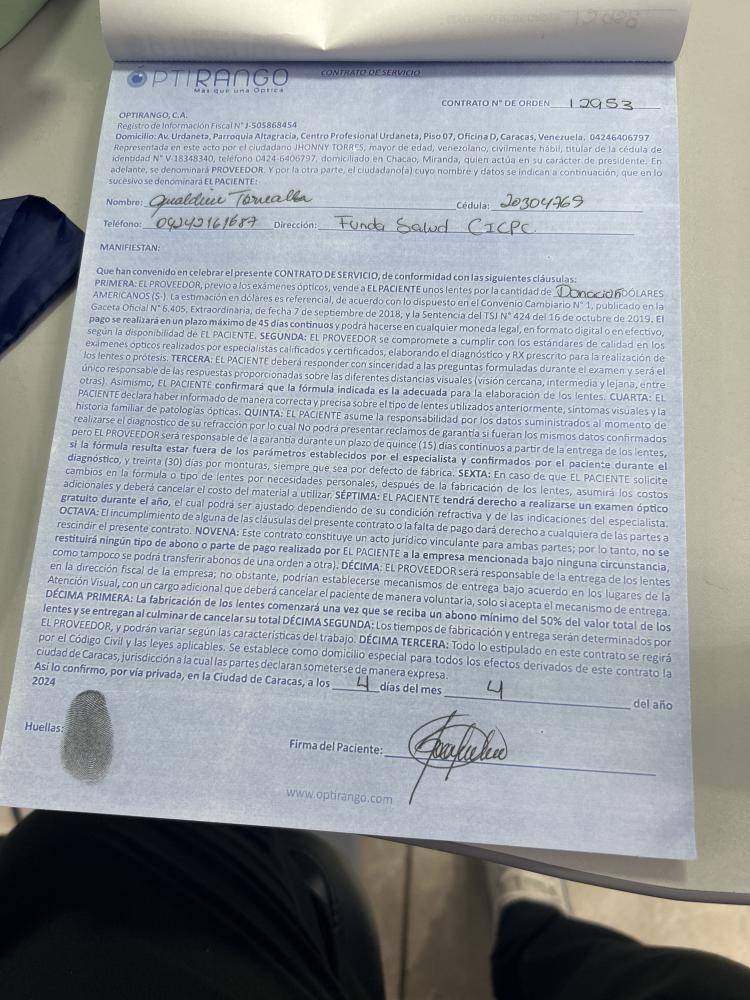 ÓPTIRANGO
Más que una Óptica
CONTRATO DE SERVICIO
CONTRATO N° DE ORDEN 12953
OPTIRANGO, C.A.
Registro de Información Fiscal N° J-505868454
Domicilio: Av. Urdaneta, Parroquia Altagracia, Centro Profesional Urdaneta, Piso 07, Oficina D, Caracas, Venezuela. 04246406797
Representada en este acto por el ciudadano JHONNY TORRES, mayor de edad, venezolano, civilmente hábil, titular de la cédula de
identidad N° V-18348340, teléfono 0424-6406797, domiciliado en Chacao, Miranda, quien actúa en su carácter de presidente. En
adelante, se denominará PROVEEDOR. Y por la otra parte, el ciudadano(a) cuyo nombre y datos se indican a continuación, que en lo
sucesivo se denominará EL PACIENTE:
Nombre: Gualdine Torrealba Cédula: 20304769
Teléfono: 04242161687 Dirección: Funda Salud CICPC.
MANIFIESTAN:
Que han convenido en celebrar el presente CONTRATO DE SERVICIO, de conformidad con las siguientes cláusulas:
PRIMERA: EL PROVEEDOR, previo a los exámenes ópticos, vende a EL PACIENTE unos lentes por la cantidad de Donación DÓLARES
AMERICANOS ($-). La estimación en dólares es referencial, de acuerdo con lo dispuesto en el Convenio Cambiario N° 1, publicado en la
Gaceta Oficial N° 6.405, Extraordinaria, de fecha 7 de septiembre de 2018, y la Sentencia del TSJ N° 424 del 16 de octubre de 2019. El
pago se realizará en un plazo máximo de 45 días continuos y podrá hacerse en cualquier moneda legal, en formato digital o en efectivo,
según la disponibilidad de EL PACIENTE. SEGUNDA: EL PROVEEDOR se compromete a cumplir con los estándares de calidad en los
exámenes ópticos realizados por especialistas calificados y certificados, elaborando el diagnóstico y RX prescrito para la realización de
los lentes o prótesis. TERCERA: EL PACIENTE deberá responder con sinceridad a las preguntas formuladas durante el examen y será el
único responsable de las respuestas proporcionadas sobre las diferentes distancias visuales (visión cercana, intermedia y lejana, entre
otras). Asimismo, EL PACIENTE confirmará que la fórmula indicada es la adecuada para la elaboración de los lentes. CUARTA: EL
PACIENTE declara haber informado de manera correcta y precisa sobre el tipo de lentes utilizados anteriormente, síntomas visuales y la
historia familiar de patologías ópticas. QUINTA: EL PACIENTE asume la responsabilidad por los datos suministrados al momento de
realizarse el diagnostico de su refracción por lo cual No podrá presentar reclamos de garantía si fueran los mismos datos confirmados
pero EL PROVEEDOR será responsable de la garantía durante un plazo de quince (15) días continuos a partir de la entrega de los lentes,
si la fórmula resulta estar fuera de los parámetros establecidos por el especialista y confirmados por el paciente durante el
diagnóstico, y treinta (30) días por monturas, siempre que sea por defecto de fábrica. SEXTA: En caso de que EL PACIENTE solicite
cambios en la fórmula o tipo de lentes por necesidades personales, después de la fabricación de los lentes, asumirá los costos
adicionales y deberá cancelar el costo del material a utilizar. SÉPTIMA: EL PACIENTE tendrá derecho a realizarse un examen óptico
gratuito durante el año, el cual podrá ser ajustado dependiendo de su condición refractiva y de las indicaciones del especialista.
OCTAVA: El incumplimiento de alguna de las cláusulas del presente contrato o la falta de pago dará derecho a cualquiera de las partes a
rescindir el presente contrato. NOVENA: Este contrato constituye un acto jurídico vinculante para ambas partes; por lo tanto, no se
restituirá ningún tipo de abono o parte de pago realizado por EL PACIENTE a la empresa mencionada bajo ninguna circunstancia,
como tampoco se podrá transferir abonos de una orden a otra). DÉCIMA: EL PROVEEDOR será responsable de la entrega de los lentes
en la dirección fiscal de la empresa; no obstante, podrían establecerse mecanismos de entrega bajo acuerdo en los lugares de la
Atención Visual, con un cargo adicional que deberá cancelar el paciente de manera voluntaria, solo si acepta el mecanismo de entrega.
DÉCIMA PRIMERA: La fabricación de los lentes comenzará una vez que se reciba un abono mínimo del 50% del valor total de los
lentes y se entregan al culminar de cancelar su total DÉCIMA SEGUNDA: Los tiempos de fabricación y entrega serán determinados por
EL PROVEEDOR, y podrán variar según las características del trabajo. DÉCIMA TERCERA: Todo lo estipulado en este contrato se regirá
por el Código Civil y las leyes aplicables. Se establece como domicilio especial para todos los efectos derivados de este contrato la
ciudad de Caracas, jurisdicción a la cual las partes declaran someterse de manera expresa.
Así lo confirmo, por vía privada, en la Ciudad de Caracas, a los 4 días del mes 4 del año
2024
Huellas:
Firma del Paciente:
www.optirango.com